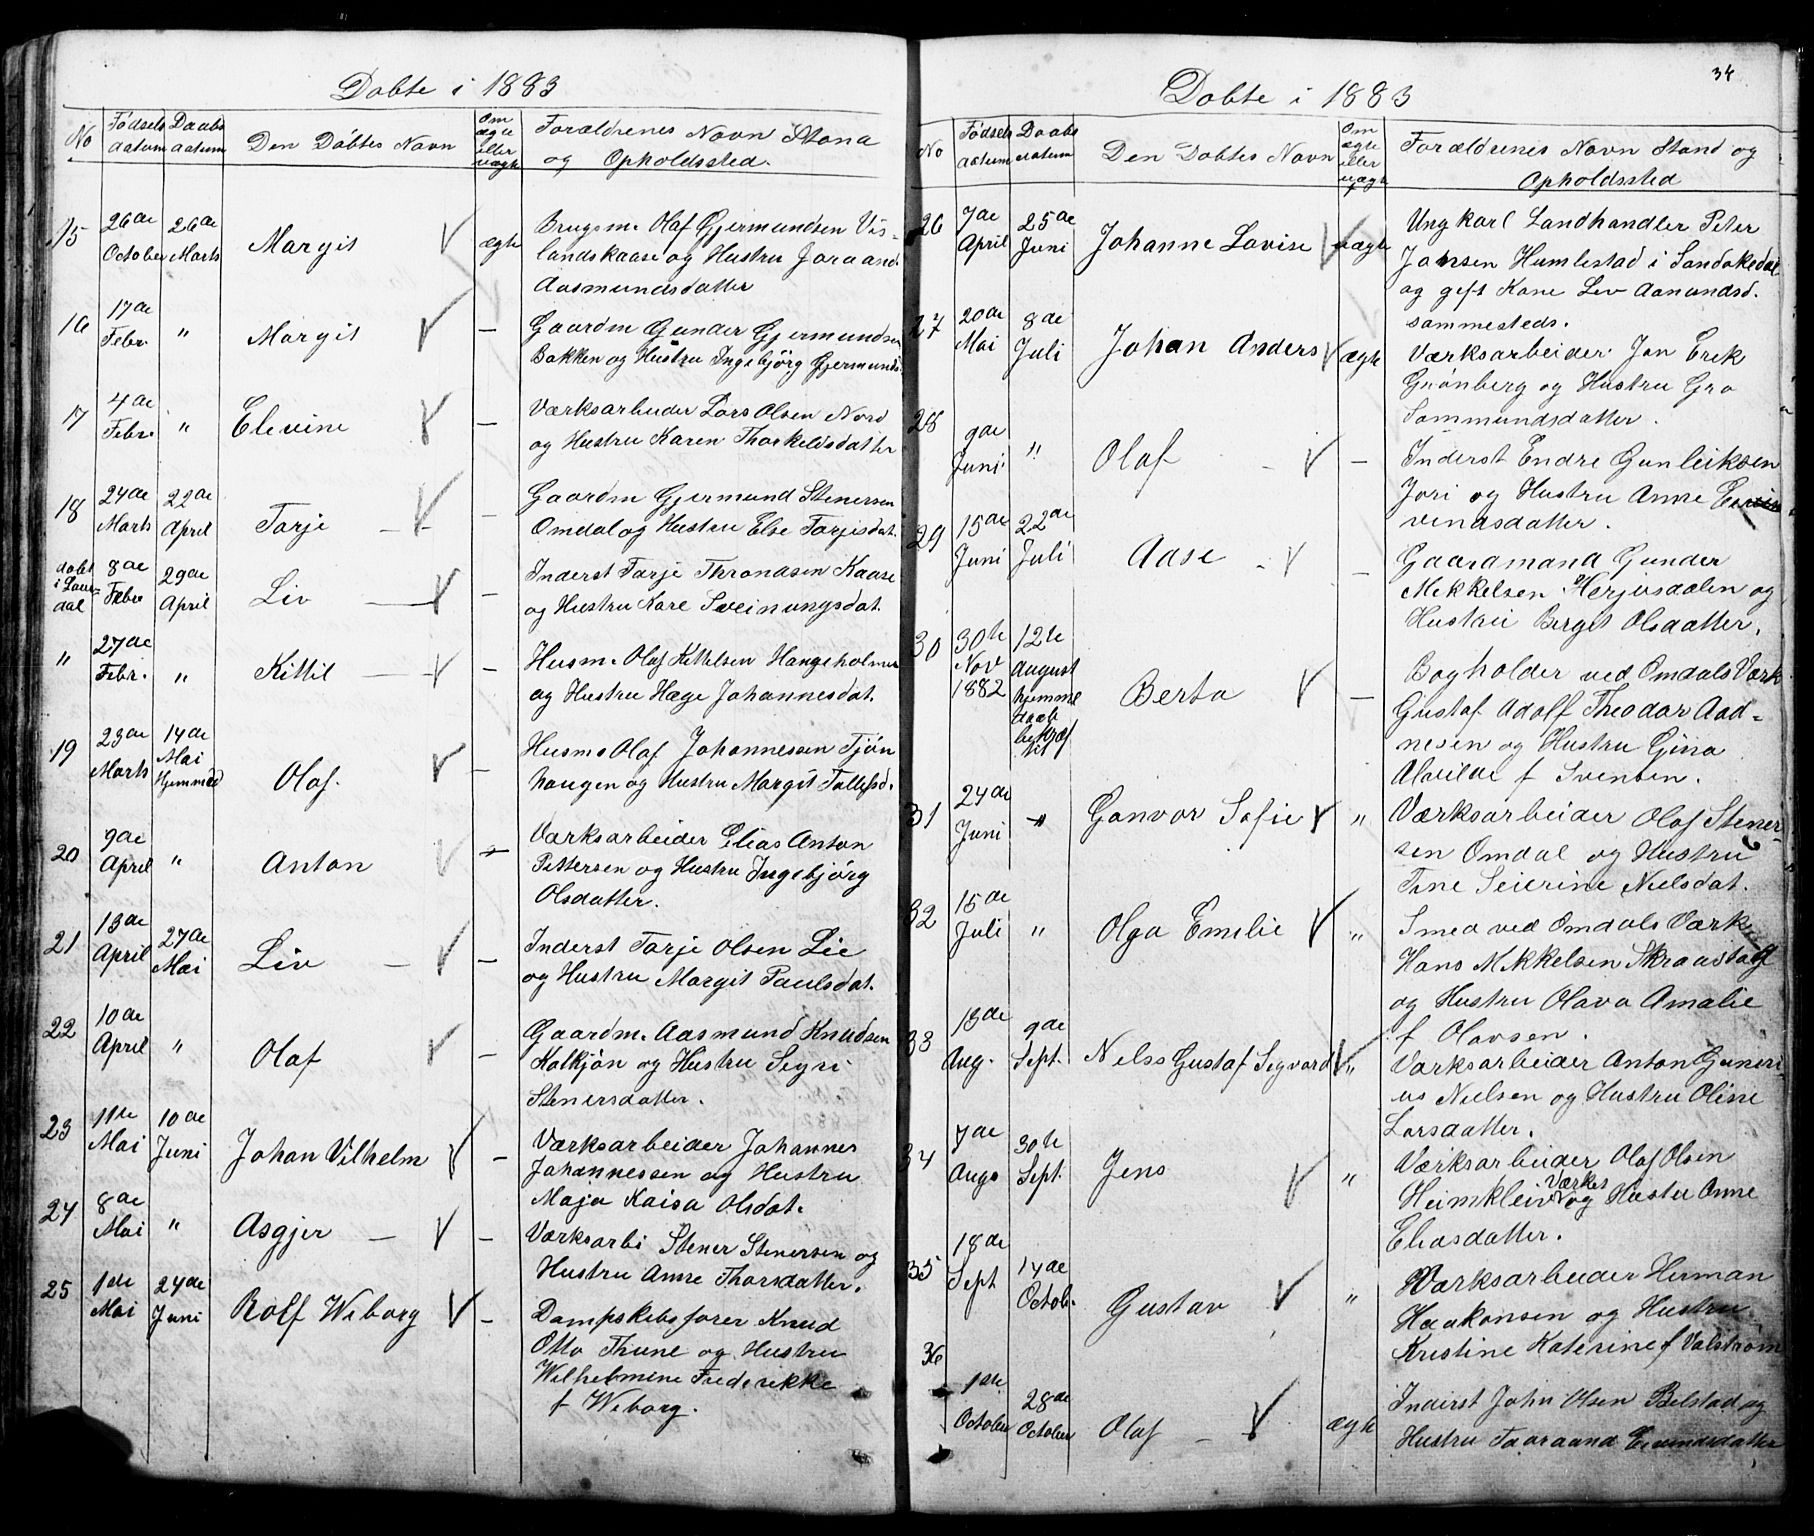 34
Döbte i 1883
No
Födsels datum
Daabs datum
Den Döbtes Navn
Om ægte eller uægte
Forældrenes Navn Stand
og Opholdssted.
15
26de October
26de Marts
Margit
ægte
Brugsm. Olaf Gjermundsen Vis-
landskaase og Hustru Joraand
Aasmundsdatter
16
17de Febr.
"
Margit
—
Gaardm Gunder Gjermundsen
Bakken og Hustru Ingebjörg Gjermunds.
17
4de Febr.
"
Elevine
—
Værksarbeider Lars Olsen Nord
og Hustru Karen Thorkeldsdatter
18
24de Marts
22de April
Tarje
—
Gaardm Gjermund Stenersen
Omdal og Hustru Else Tarjisdat.
döbt i Laurdal
8de Febr
29de April
Liv
—
Inderst Tarje Throndsen Kaase
og Hustru Kare Sveinungsdat.
"
27de Febr.
"
Kittil
—
Husm. Olaf Kittelsen Hangeholmen
og Hustru Hæge Johannesdat.
19
23de Marts
14de Mai Hjemmed
Olaf.
—
Husm. Olaf Johannessen Tjön
haugen og Hustru Margit Tollefsd.
20
9de April
"
Anton
—
Værksarbeider Elias Anton
Pettersen og Hustru Ingebjörg
Olsdatter.
21
13de April
27de Mai
Liv
—
Inderst Tarje Olsen Lie
og Hustru Margit Paulsdat.
22
10de April
"
Olaf
—
Gaardm. Aasmund Knudsen
Kolkjön og Hustru Segri
Stenersdatter.
23
11te Mai
10de Juni
Johan Vilhelm
—
Værksarbeider Johannes
Johannessen og Hustru
Maja Kaisa Olsdat.
24
8de Mai
"
Asgjer
—
Værksarbi Stener Stenersen og
Hustru Anne Thorsdatter.
25
1ste Mai
24de Juni
Rolf Wiborg
—
Dampskibsförer Knud
Otto Thune og Hustru
Wilhelmine Frederikke
f Wiborg.
Döbte i 1883
No
Födsels datum
Daabs datum
Den Döbtes Navn
Om ægte eller uægte
Forældrenes Navn Stand og
Opholdssted
26
7de April
25de Juni
Johanne Lovise
uægte
Ungkarl Landhandler Peter
Jansen Humlestad i Sandökedal
og gift Kone Liv Aanundsd.
sammesteds.
27
20de Mai
8de Juli
Johan Anders
ægte
Værksarbeider Jan Erek
Grönberg og Hustru Gro
Sammundsdatter.
28
9de Juni
"
Olaf
—
Inderst Endre Gunleiksen
Jori og Hustru Anne
vindsdatter.
29
15de Juni
22de Juli
Aase
—
Gaardmand Gunder
Mekkelsen Herjusdalen og
Hustru Berget Olsdatter.
30
30te Nov 1882
12te august hjemme daab bekræf tet
Berta
—
Bogholder ved Omdals Værk
Gustaf Adolf Theodor Aad-
nesen og Hustru Gina
Alvilde f Svensen.
31
24de Juni
"
Gonvor Sofie
"
Værksarbeider Olaf Stener-
sen Omdal og Hustru
Tine Seierine Nielsdat.
32
15de Juli
"
Olga Emelie
"
Smed ved Omdals Værk
Hans Mikkelsen Skraastad
og Hustru Olava Amalie
f Olavsen.
33
13de Aug.
9de Sept.
Nelss Gustaf Segvard
"
Værksarbeider Anton Guneri-
us Nielsen og Hustru Oline
Larsdatter.
34
7de Augs
30te Sept.
Jens
"
Værksarbeider Olaf Olsen
Heimkleiv Værkes og Hustu Anne
Eliasdatter.
35
18de Sept
14de Octob.
Gustav
"
Værksarbeider Herman
Haakonsen og Hustru
Kristine Katerine f Valström
36
1ste October
28de October
Olaf
ægte
Inderst John Olsen Belstad og
Hustru Taaraand Eivindsdatter